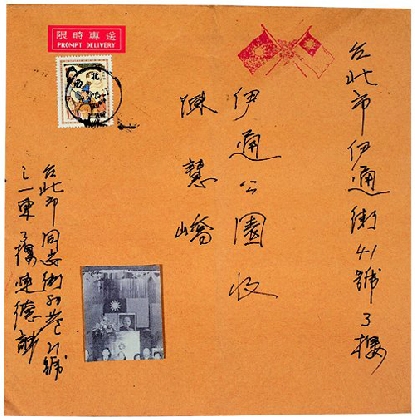 限時專送
PROMPT DELIVERY
台北市伊通街41號3樓
伊通公園收
陳慧嶠
台北市同安街 巷 號
之一 樓連德誠